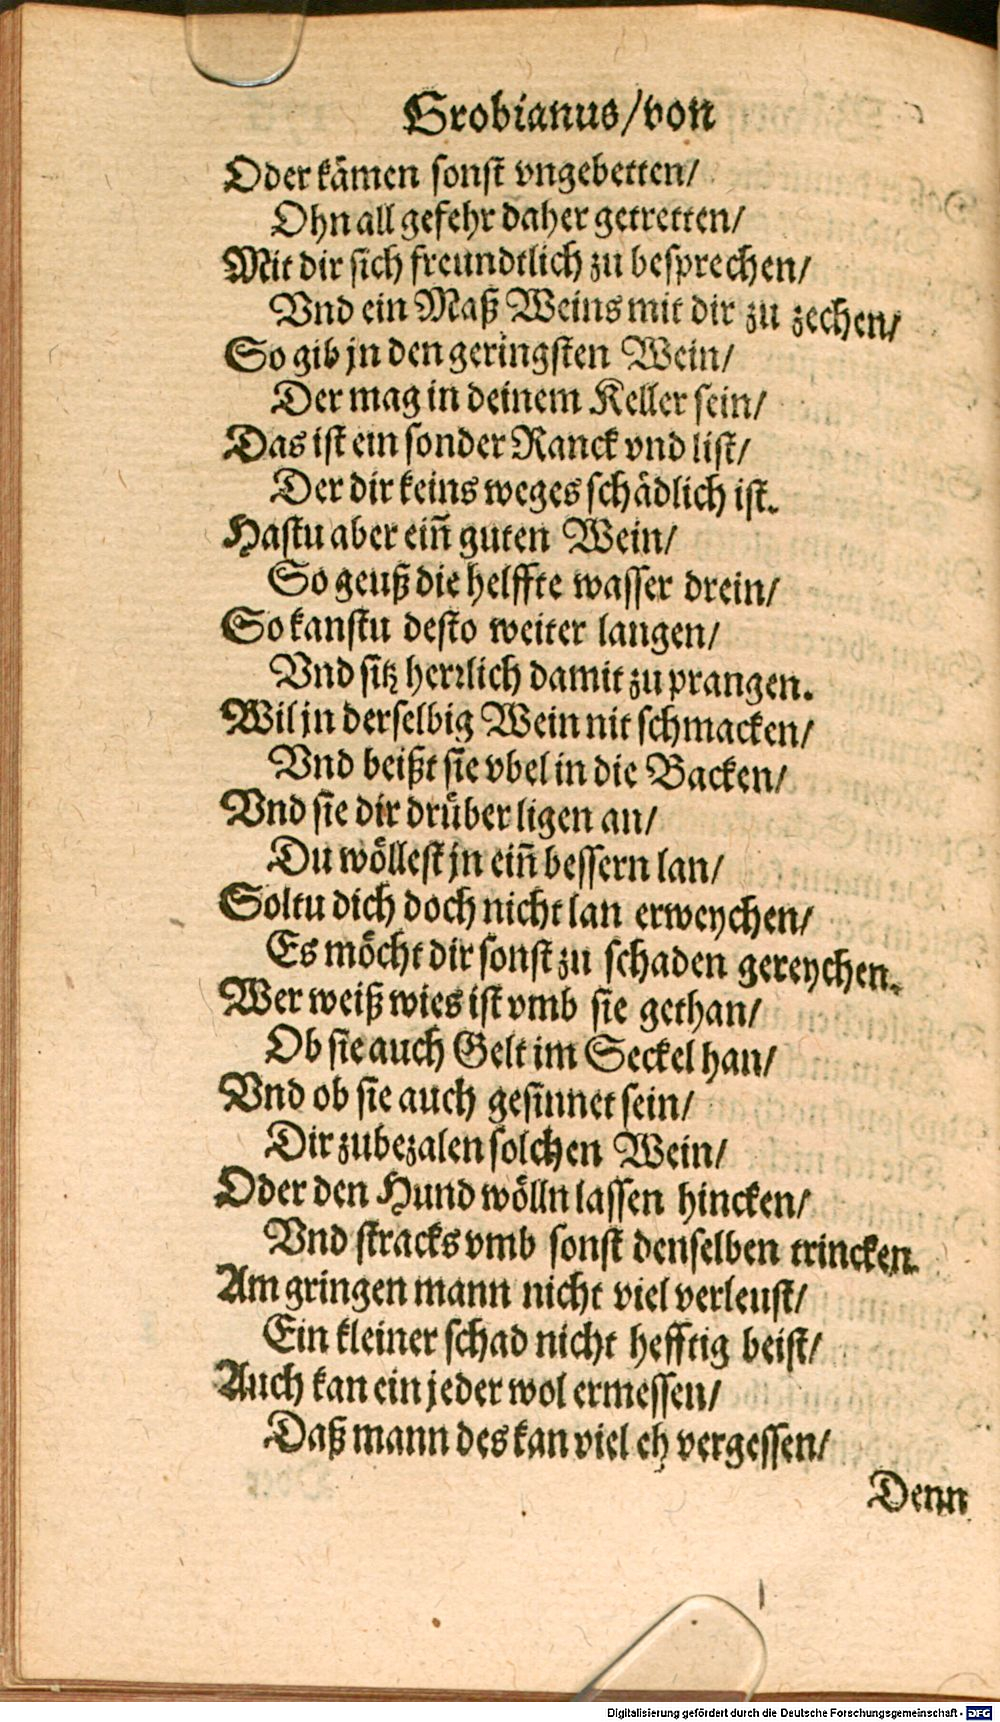 Grobianus/von
Oder kämen sonst vngebetten/
Ohn all gefehr daher getretten/
Mit dir sich freundtlich zu besprechen/
Vnd ein Maß Weins mit dir zu zechen/
So gib jn den geringsten Wein/
Der mag in deinem Keller sein/
Das ist ein sonder Ranck vnd list/
Der dir keins weges schädlich ist.
Hastu aber eiñ guten Wein/
So geuß die helffte wasser drein/
So kanstu desto weiter langen/
Vnd sitz herrlich damit zu prangen.
Wil jn derselbig Wein nit schmacken/
Vnd beißt sie vbel in die Backen/
Vnd sie dir drüber ligen an/
Du wöllest jn eiñ bessern lan/
Soltu dich doch nicht lan erweychen/
Es möcht dir sonst zu schaden gereychen.
Wer weiß wies ist vmb sie gethan/
Ob sie auch Gelt im Seckel han/
Vnd ob sie auch gesinnet sein/
Dir zubezalen solchen Wein/
Oder den Hund wölln lassen hincken/
Vnd stracks vmb sonst denselben trincken.
Am gringen mann nicht viel verleust/
Ein kleiner schad nicht hefftig beist/
Auch kan ein jeder wol ermessen/
Daß mann des kan viel eh vergessen/
Denn
Digitalisierung gefördert durch die Deutsche Forschungsgemeinschaft - DFG